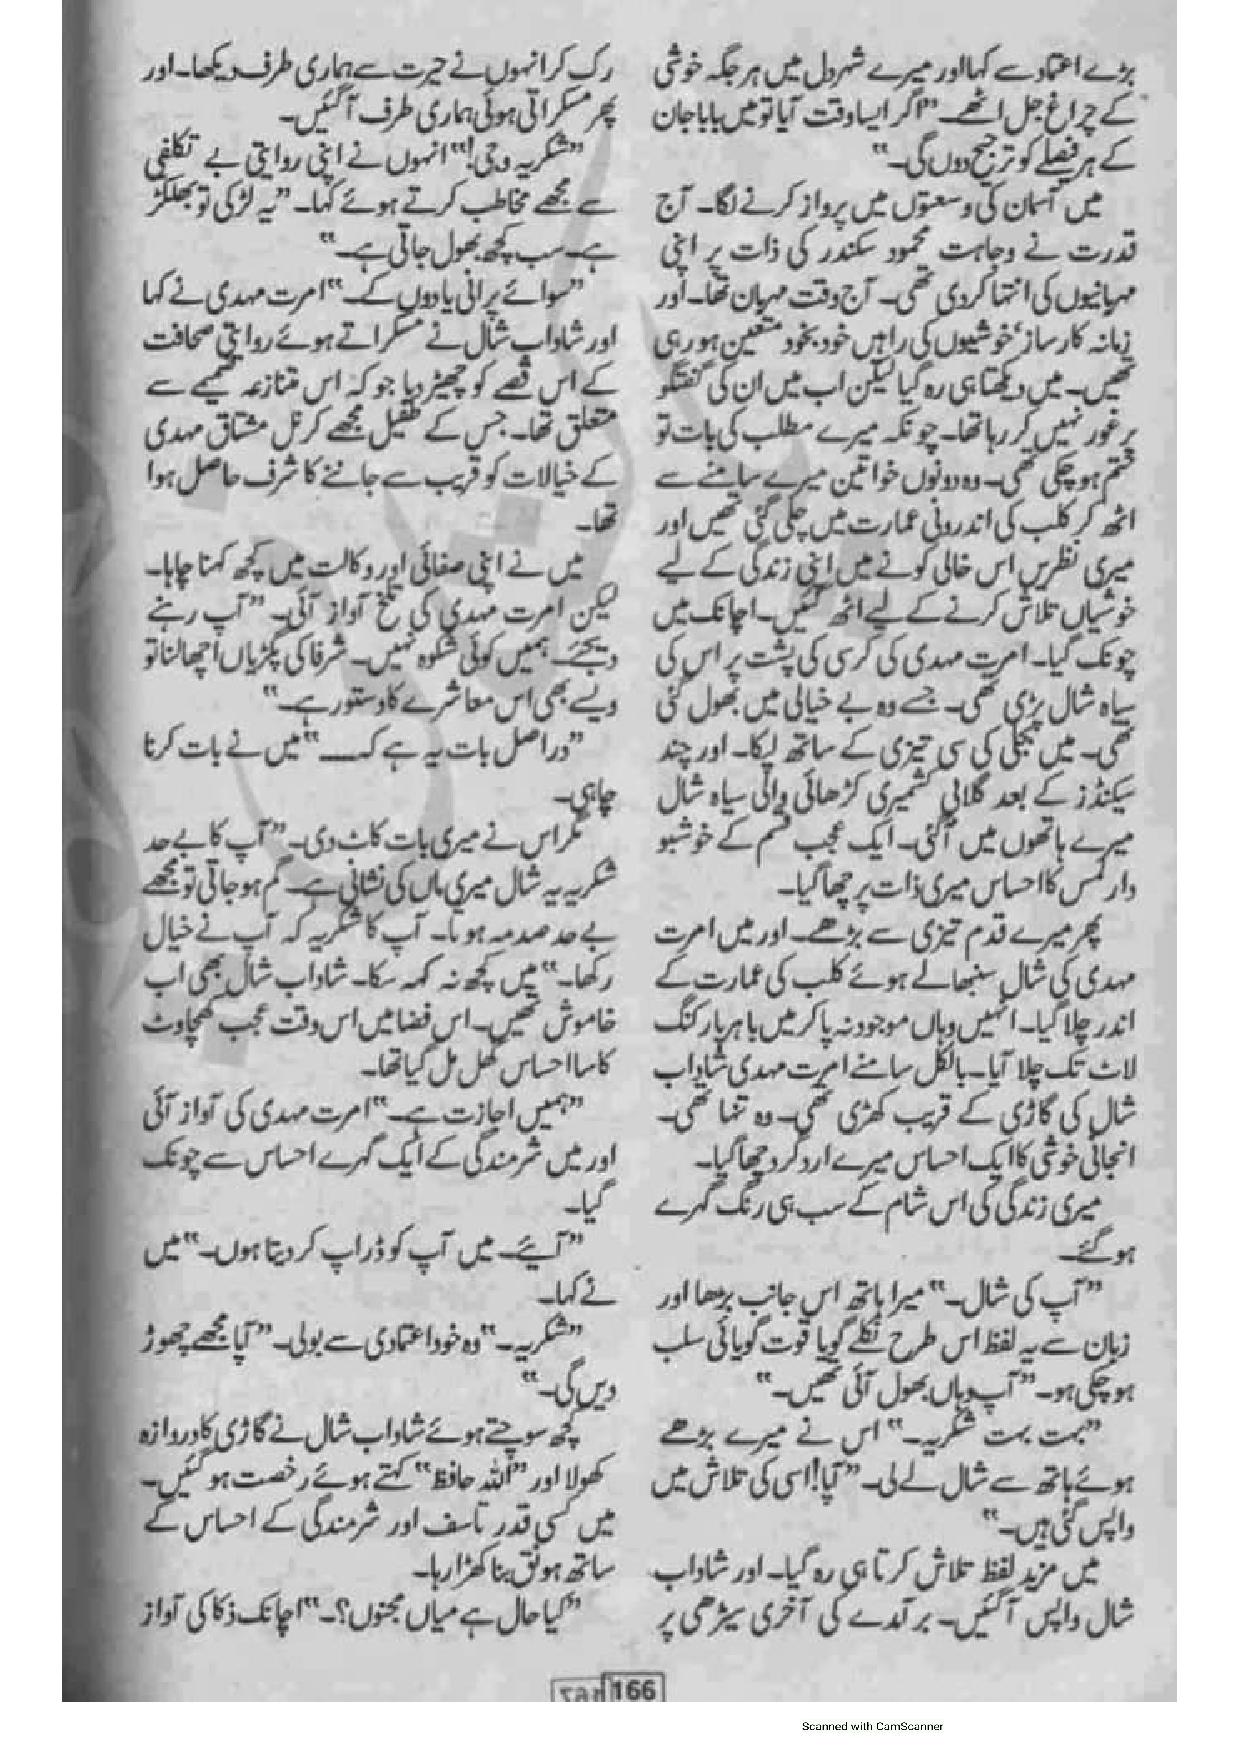 بڑے اعتماد سے کہا اور میرے شہر دل میں ہر جگہ خوشی
کے چراغ جل اٹھے۔ "اگر ایسا وقت آیا تو میں بابا جان
کے ہر فیصلے کو ترجیح دوں گی۔"
میں آسمان کی وسعتوں میں پرواز کرنے لگا۔ آج
قدرت نے وجاہت محمود سکندر کی ذات پر اپنی
مہربانیوں کی انتہا کر دی تھی۔ آج وقت مہربان تھا۔ اور
زمانہ کارساز، خوشیوں کی راہیں خود بخود متعین ہو رہی
تھیں۔ میں دیکھتا ہی رہ گیا لیکن اب میں ان کی گفتگو
پر غور نہیں کر رہا تھا۔ چونکہ میرے مطلب کی بات تو
ختم ہو چکی تھی۔ وہ دونوں خواتین میرے سامنے سے
اٹھ کر کلب کی اندرونی عمارت میں چلی گئی تھیں اور
میری نظریں اس خالی کونے میں اپنی زندگی کے لیے
خوشیاں تلاش کرنے کے لیے اٹھ گئیں۔ اچانک میں
چونک گیا۔ امرت مہدی کی کرسی کی پشت پر اس کی
سیاہ شال پڑی تھی۔ جسے وہ بے خیالی میں بھول گئی
تھی۔ میں بجلی کی سی تیزی کے ساتھ لپکا۔ اور چند
سیکنڈز کے بعد گلابی کشمیری کڑھائی والی سیاہ شال
میرے ہاتھوں میں آگئی۔ ایک عجب قسم کے خوشبو
دار لمس کا احساس میری ذات پر چھا گیا۔
پھر میرے قدم تیزی سے بڑھے۔ اور میں امرت
مہدی کی شال سنبھالے ہوئے کلب کی عمارت کے
اندر چلا گیا۔ انہیں وہاں موجود نہ پا کر میں باہر پارکنگ
لاٹ تک چلا آیا۔ بالکل سامنے امرت مہدی شاداب
شال کی گاڑی کے قریب کھڑی تھی۔ وہ تنہا تھی۔
انجانی خوشی کا ایک احساس میرے ارد گرد چھا گیا۔
میری زندگی کی اس شام کے سب ہی رنگ گہرے
ہو گئے۔
"آپ کی شال۔" میرا ہاتھ اس جانب بڑھا اور
زبان سے یہ لفظ اس طرح نکلے گویا قوت گویائی سلب
ہو چکی ہو۔ "آپ وہاں بھول آئی تھیں۔"
"بہت بہت شکریہ۔" اس نے میرے بڑھے
ہوئے ہاتھ سے شال لے لی۔ "آپا! اسی کی تلاش میں
واپس گئی ہیں۔"
میں مزید لفظ تلاش کرتا ہی رہ گیا۔ اور شاداب
شال واپس آگئیں۔ برآمدے کی آخری سیڑھی پر
رک کر انہوں نے حیرت سے ہماری طرف دیکھا۔ اور
پھر مسکراتی ہوئی ہماری طرف آگئیں۔
"شکریہ وجی!" انہوں نے اپنی روایتی بے تکلفی
سے مجھے مخاطب کرتے ہوئے کہا۔ "یہ لڑکی تو بھلکڑ
ہے۔ سب کچھ بھول جاتی ہے۔"
"سوائے پرانی یادوں کے۔" امرت مہدی نے کہا
اور شاداب شال نے مسکراتے ہوئے روایتی صحافت
کے اس قصے کو چھیڑ دیا جو کہ اس متنازعہ ضمیمے سے
متعلق تھا۔ جس کے طفیل مجھے کرنل مشتاق مہدی
کے خیالات کو قریب سے جاننے کا شرف حاصل ہوا
تھا۔
میں نے اپنی صفائی اور وکالت میں کچھ کہنا چاہا۔
لیکن امرت مہدی کی تلخ آواز آئی۔ "آپ رہنے
دیجئے۔ ہمیں کوئی شکوہ نہیں۔ شرفا کی پگڑیاں اچھالنا تو
ویسے بھی اس معاشرے کا دستور ہے۔"
"دراصل بات یہ ہے کہ ــــ" میں نے بات کرنا
چاہی۔
مگر اس نے میری بات کاٹ دی۔ "آپ کا بے حد
شکریہ یہ شال میری ماں کی نشانی ہے۔ گم ہو جاتی تو مجھے
بے حد صدمہ ہوتا۔ آپ کا شکریہ کہ آپ نے خیال
رکھا۔" میں کچھ نہ کہہ سکا۔ شاداب شال بھی اب
خاموش تھیں۔ اس فضا میں اس وقت عجب کھچاوٹ
کا سا احساس گھل مل گیا تھا۔
"ہمیں اجازت ہے۔" امرت مہدی کی آواز آئی
اور میں شرمندگی کے ایک گہرے احساس سے چونک
گیا۔
"آیئے۔ میں آپ کو ڈراپ کر دیتا ہوں۔" میں
نے کہا۔
"شکریہ۔" وہ خود اعتمادی سے بولی۔ "آپا مجھے چھوڑ
دیں گی۔"
کچھ سوچتے ہوئے شاداب شال نے گاڑی کا دروازہ
کھولا اور "اللہ حافظ" کہتے ہوئے رخصت ہو گئیں۔
میں کسی قدر تاسف اور شرمندگی کے احساس کے
ساتھ ہونق بنا کھڑا رہا۔
"کیا حال ہے میاں مجنوں؟۔" اچانک ذکا کی آواز
166
Scanned with CamScanner